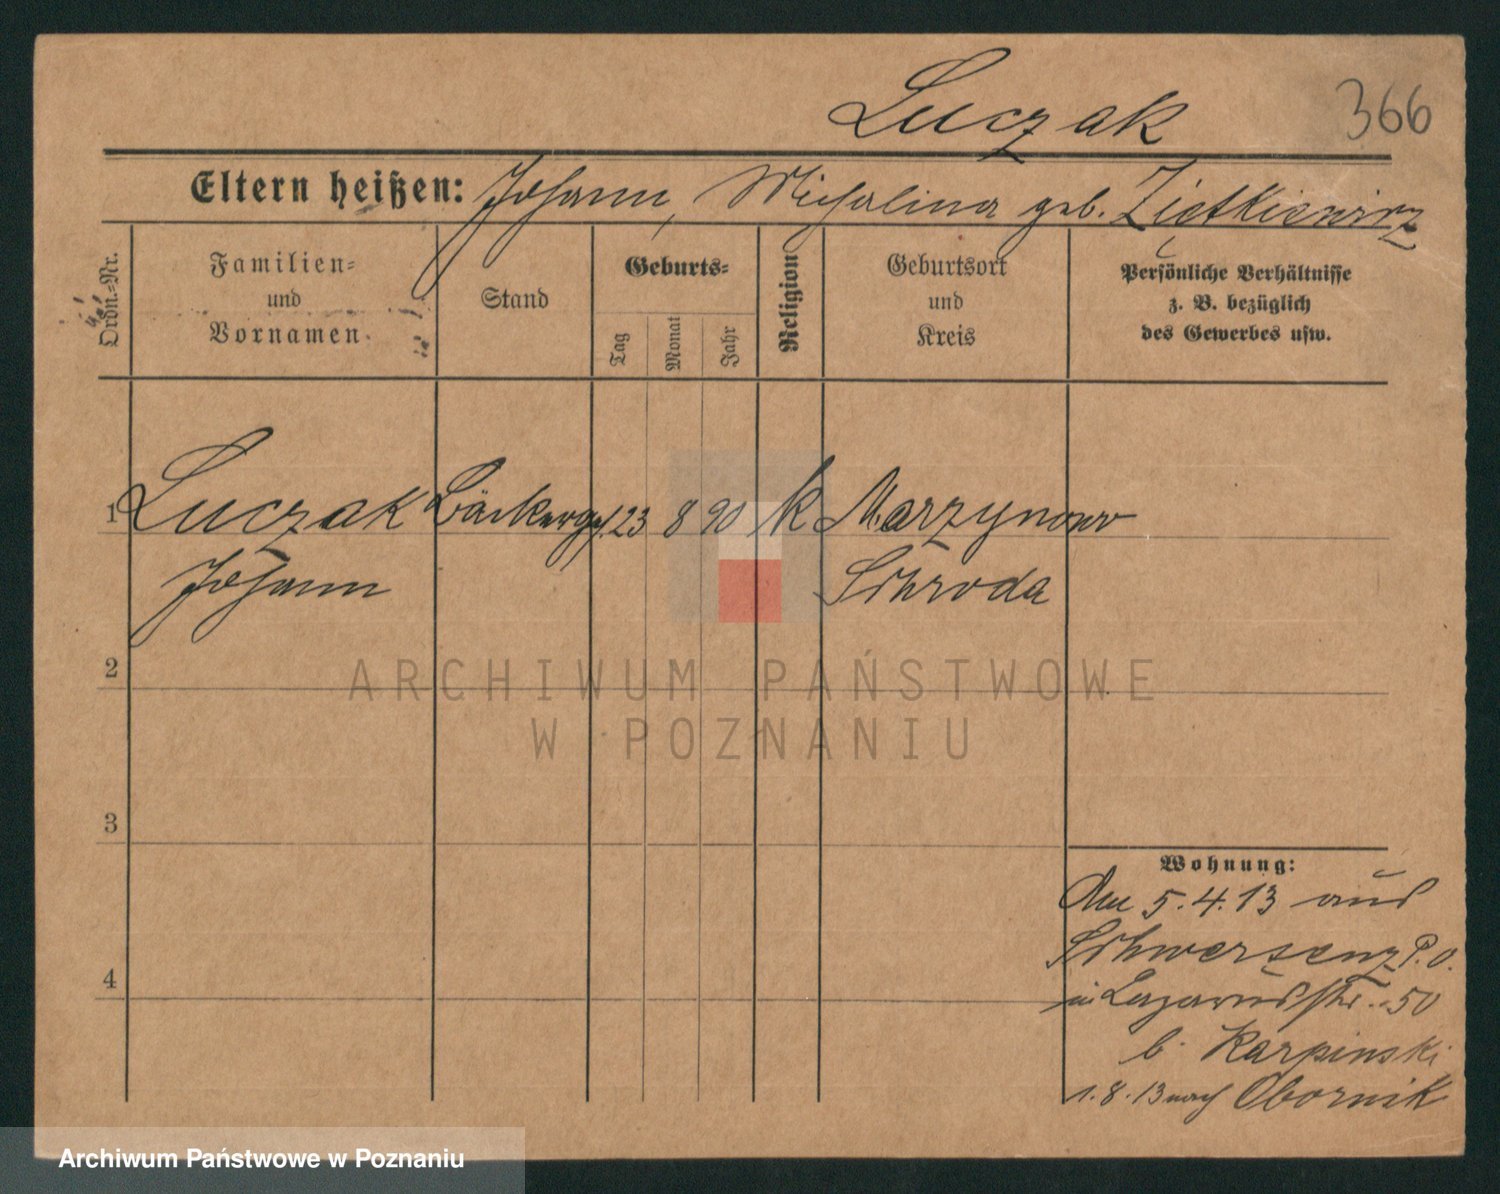 Luczak
366
Eltern heißen: Johann, Michalina geb. Zietkiewicz
Ordn.-Nr.
Familien-
und
Vornamen.
Stand
Geburts-
Tag
Monat
Jahr
Religion
Geburtsort
und
Kreis
Persönliche Verhältnisse
z. B. bezüglich
des Gewerbes usw.
1 Luczak Bäckerges. 23 8 90 k Marzynowo
Johann Schroda
2
3
4
Wohnung:
Am 5.4.13 aus
Schwersenz P. O.
in Lazarusstr. 50
b. Karpinski
1.8.13 nach Obornik
ARCHIWUM PAŃSTWOWE
W POZNANIU
Archiwum Państwowe w Poznaniu